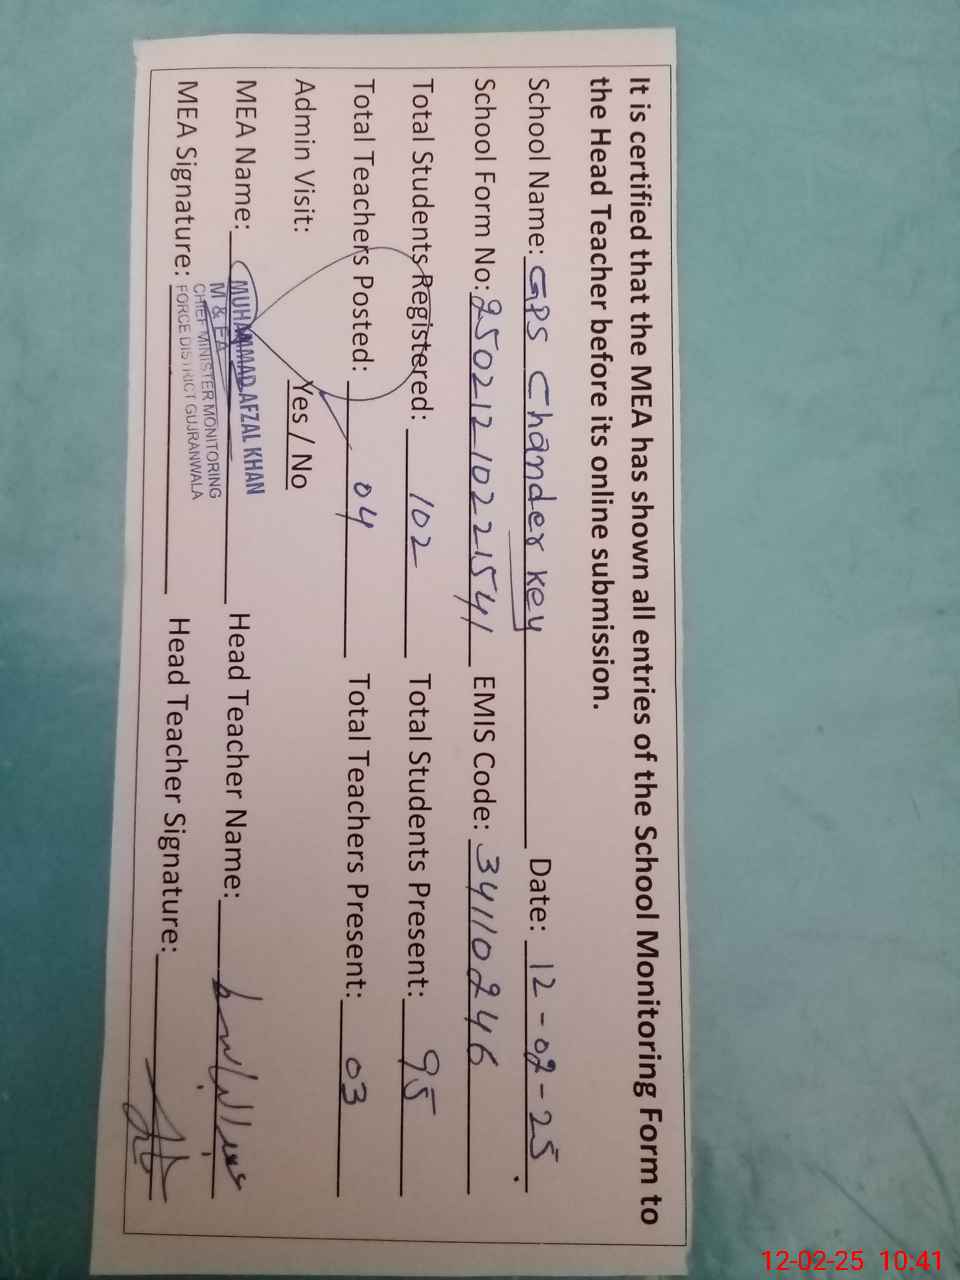 It is certified that the MEA has shown all entries of the School Monitoring Form to
the Head Teacher before its online submission.
School Name: GPS Chander key Date: 12-02-25
School Form No: 25021210221541 EMIS Code: 34110246
Total Students Registered: 102 Total Students Present: 95
Total Teachers Posted: 04 Total Teachers Present: 03
Admin Visit: Yes / No
MEA Name: MUHAMMAD AFZAL KHAN Head Teacher Name:
M & EA
CHIEF MINISTER MONITORING
MEA Signature: FORCE DISTRICT GUJRANWALA Head Teacher Signature:
12-02-25 10:41